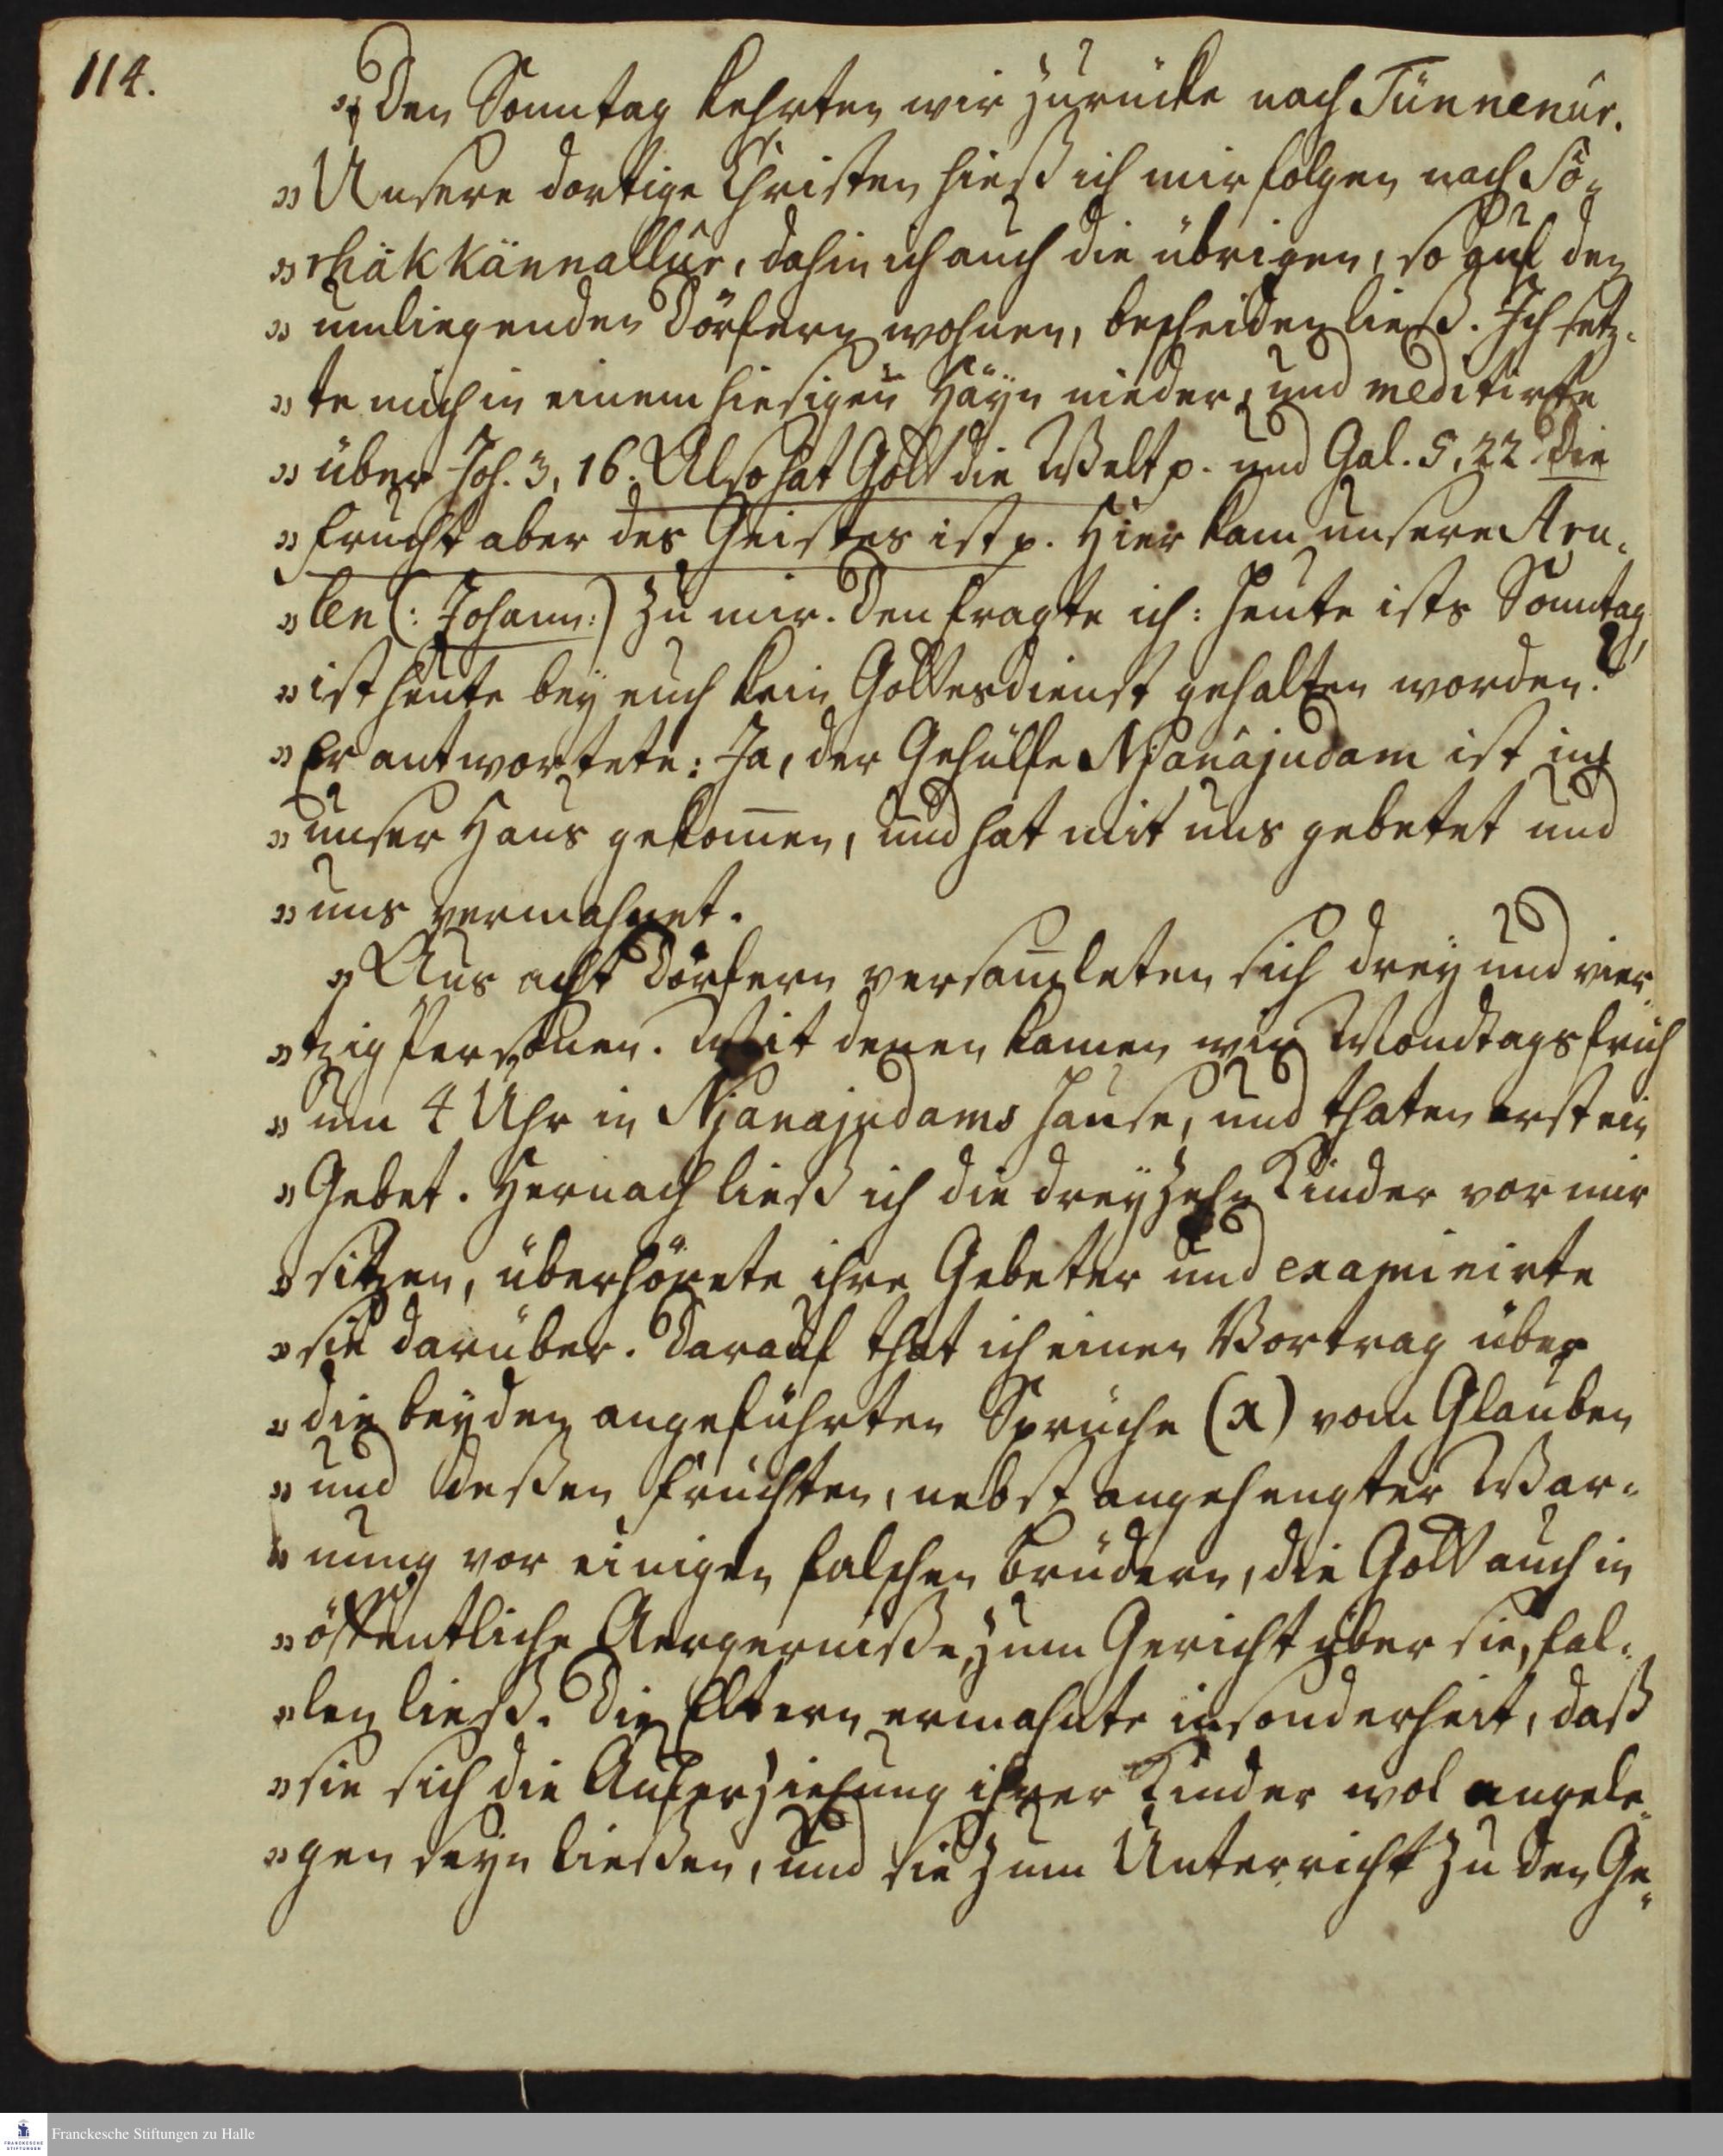 114.
„Den Sonntag kehrten wir zurücke nach Tünnenûr.
„Unsere dortige Christen hieß ich mir folgen nach Sô-
„rhäkkännallûr, dahin ich auch die übrigen, so auf den
„umliegenden Dörfern wohnen, bescheiden ließ. Ich setz-
„te mich in einem hiesigen Häyn nieder, und meditirte
„über Joh. 3, 16. Also hat Gott die Welt p. und Gal. 5, 22 Die
„Frucht aber des Geistes ist p. Hier kam unsere Aru-
„len (: Johann:) zu mir. Den fragte ich: heute ists Sonntag,
„ist heute bey euch kein Gottesdienst gehalten worden?
„Er antwortete: Ja, der Gehülfe Njanâjudam ist in
„unser Haus gekom̄en, und hat mit uns gebetet und
„uns vermahnet.
„Aus acht Dörfern versam̄leten sich drey und vier-
„tzig Personen. Mit denen kamen wir Mondtags früh
„um 4 Uhr in Njanajudams Hause, und thaten erst ein
„Gebet. Hernach ließ ich die dreyzehn Kinder vor mir
„sitzen, überhörete ihre Gebeter und examinirte
„sie darüber. Darauf that ich einen Vortrag über
„die beyden angeführten Sprüche (x) vom Glauben
„und deßen Früchten, nebst angehengter War-
„nung vor einigen falschen Brüdern, die Gott auch in
„öffentliche Aergerniße, zum Gericht über sie, fal-
„len ließ. Die Eltern ermahnte insonderheit, daß
„sie sich die Auferziehung ihrer Kinder wol angele-
„gen seyn ließen, und sie zum Unterricht zu den Ge-
Franckesche Stiftungen zu Halle